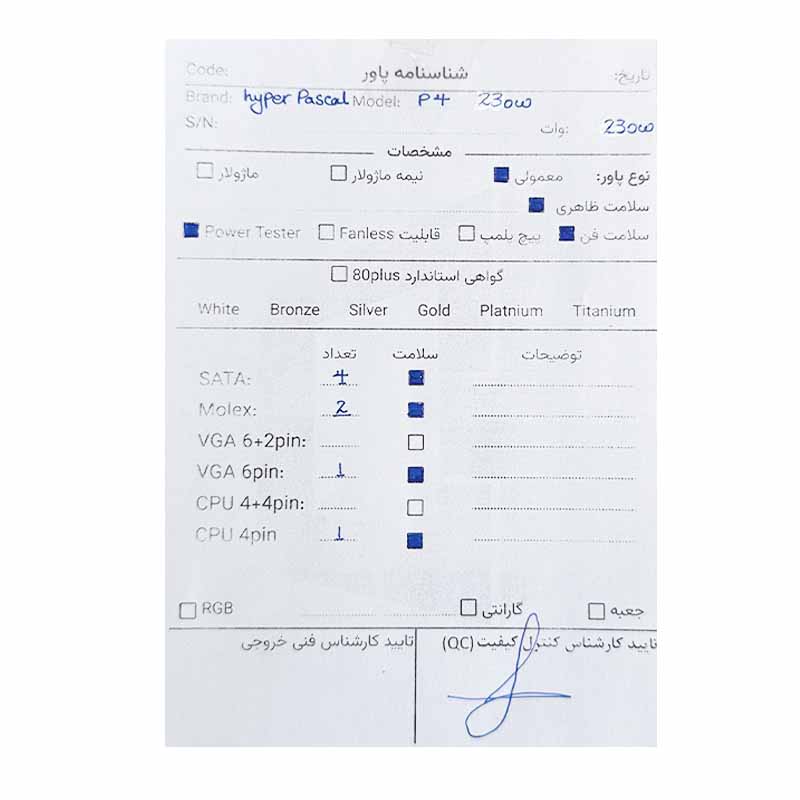 Code: شناسنامه پاور تاریخ:
Brand: hyper Pascal Model: P4 230w
S/N: وات: 230w
مشخصات
نوع پاور: معمولی نیمه ماژولار ماژولار
سلامت ظاهری
سلامت فن پیچ پلمپ قابلیت Fanless Power Tester
گواهی استاندارد 80plus
White Bronze Silver Gold Platnium Titanium
تعداد سلامت توضیحات
SATA: 4
Molex: 2
VGA 6+2pin:
VGA 6pin: 1
CPU 4+4pin:
CPU 4pin 1
RGB گارانتی جعبه
تایید کارشناس کنترل کیفیت (QC) تایید کارشناس فنی خروجی